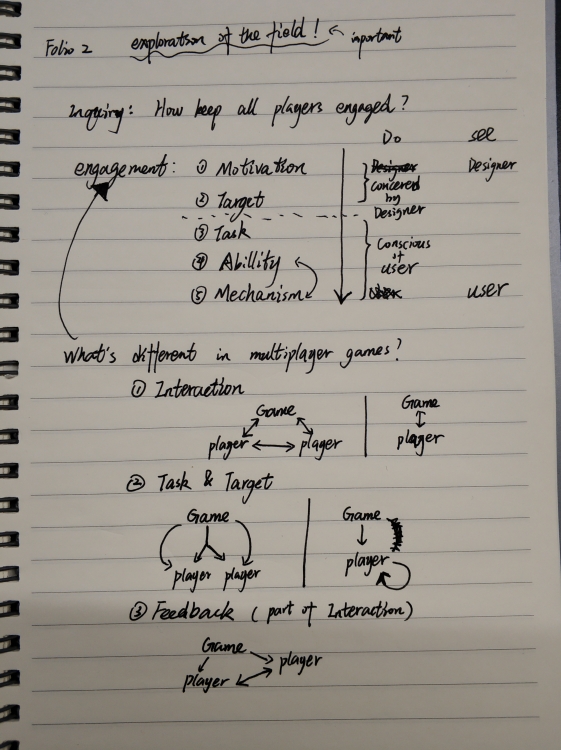 Folio 2 exploration of the field! ← important
Inquiry: How keep all players engaged?
Do see
engagement: ① Motivation Designer Designer
② Target concered
by
Designer
③ Task
Conscious
④ Abillity of
user
⑤ Mechanism user
What's different in multiplayer games?
① Interaction
Game Game
player player player
② Task & Target
Game Game
player player player
③ Feedback (part of Interaction)
Game
player
player